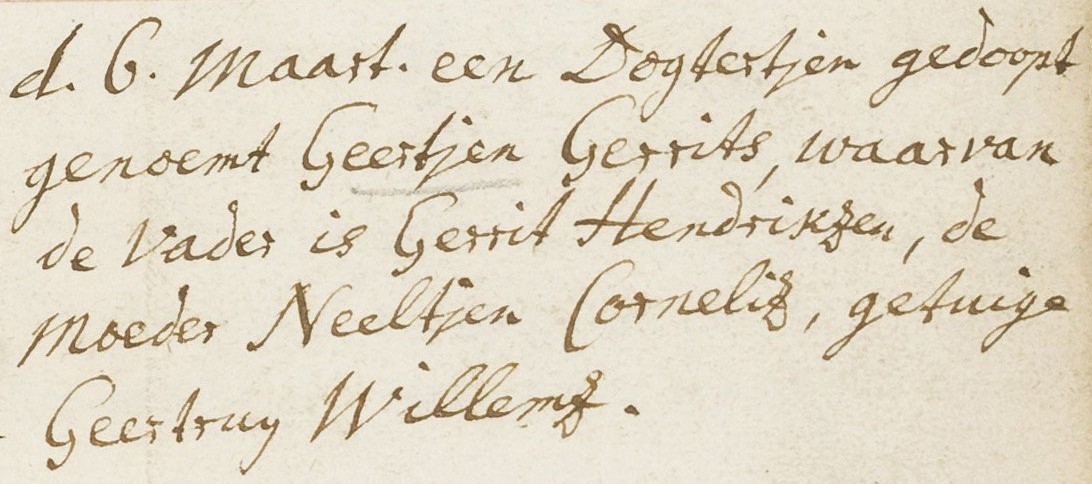 d. 6. Maart. een Dogtertjen gedoopt
genoemt Geertjen Gerrits, waarvan
de Vader is Gerrit Hendrikzen, de
Moeder Neeltjen Corneliz, getuige
Geertruy Willemz.